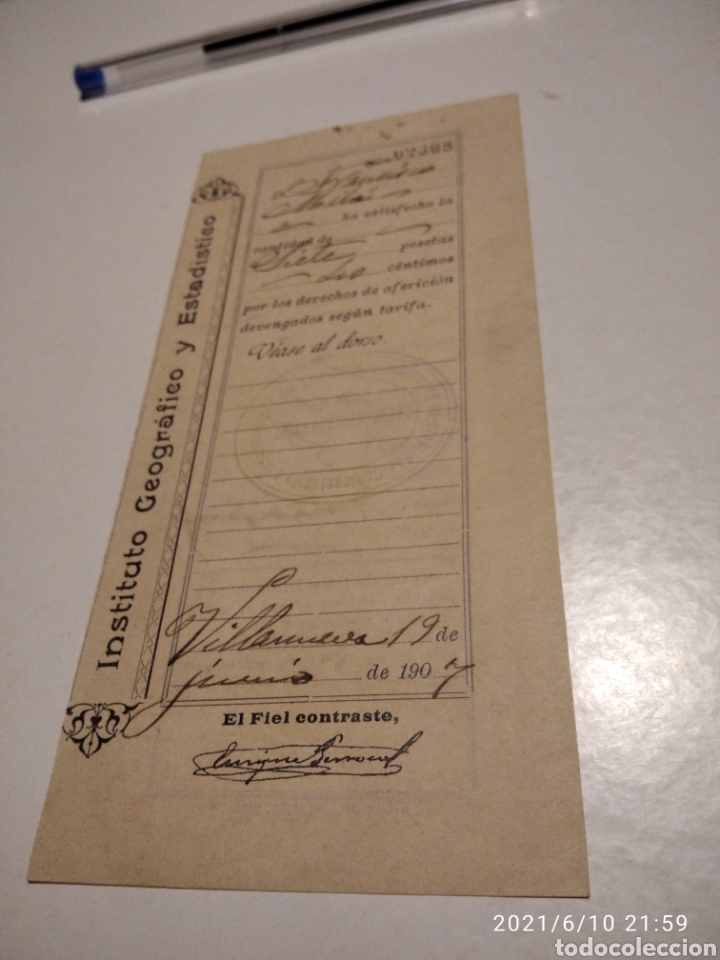 Instituto Geográfico y Estadístico
Núm. 02368
D.
ha satisfecho la
cantidad de
Siete pesetas
céntimos
por los derechos de aferición
devengados según tarifa.
Véase al dorso.
Villanueva 19 de
junio de 1907
El Fiel contraste,
Enrique Berrocal
2021/6/10 21:59
todocoleccion